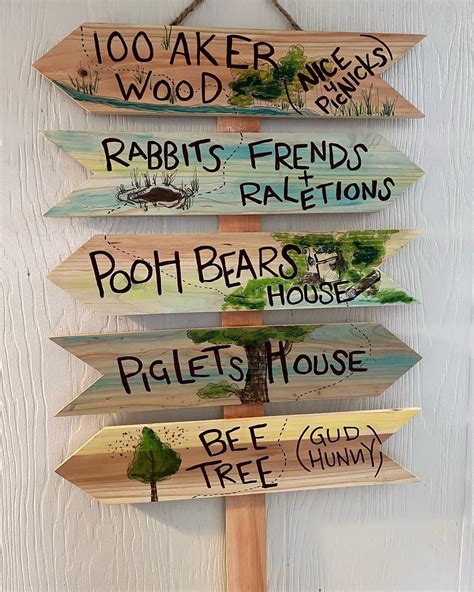 100 AKER
WOOD
(NICE
4
PICNICKS)
RABBITS FRENDS
+
RALETIONS
POOH BEARS
HOUSE
PIGLETS HOUSE
BEE
TREE
(GUD
HUNNY)